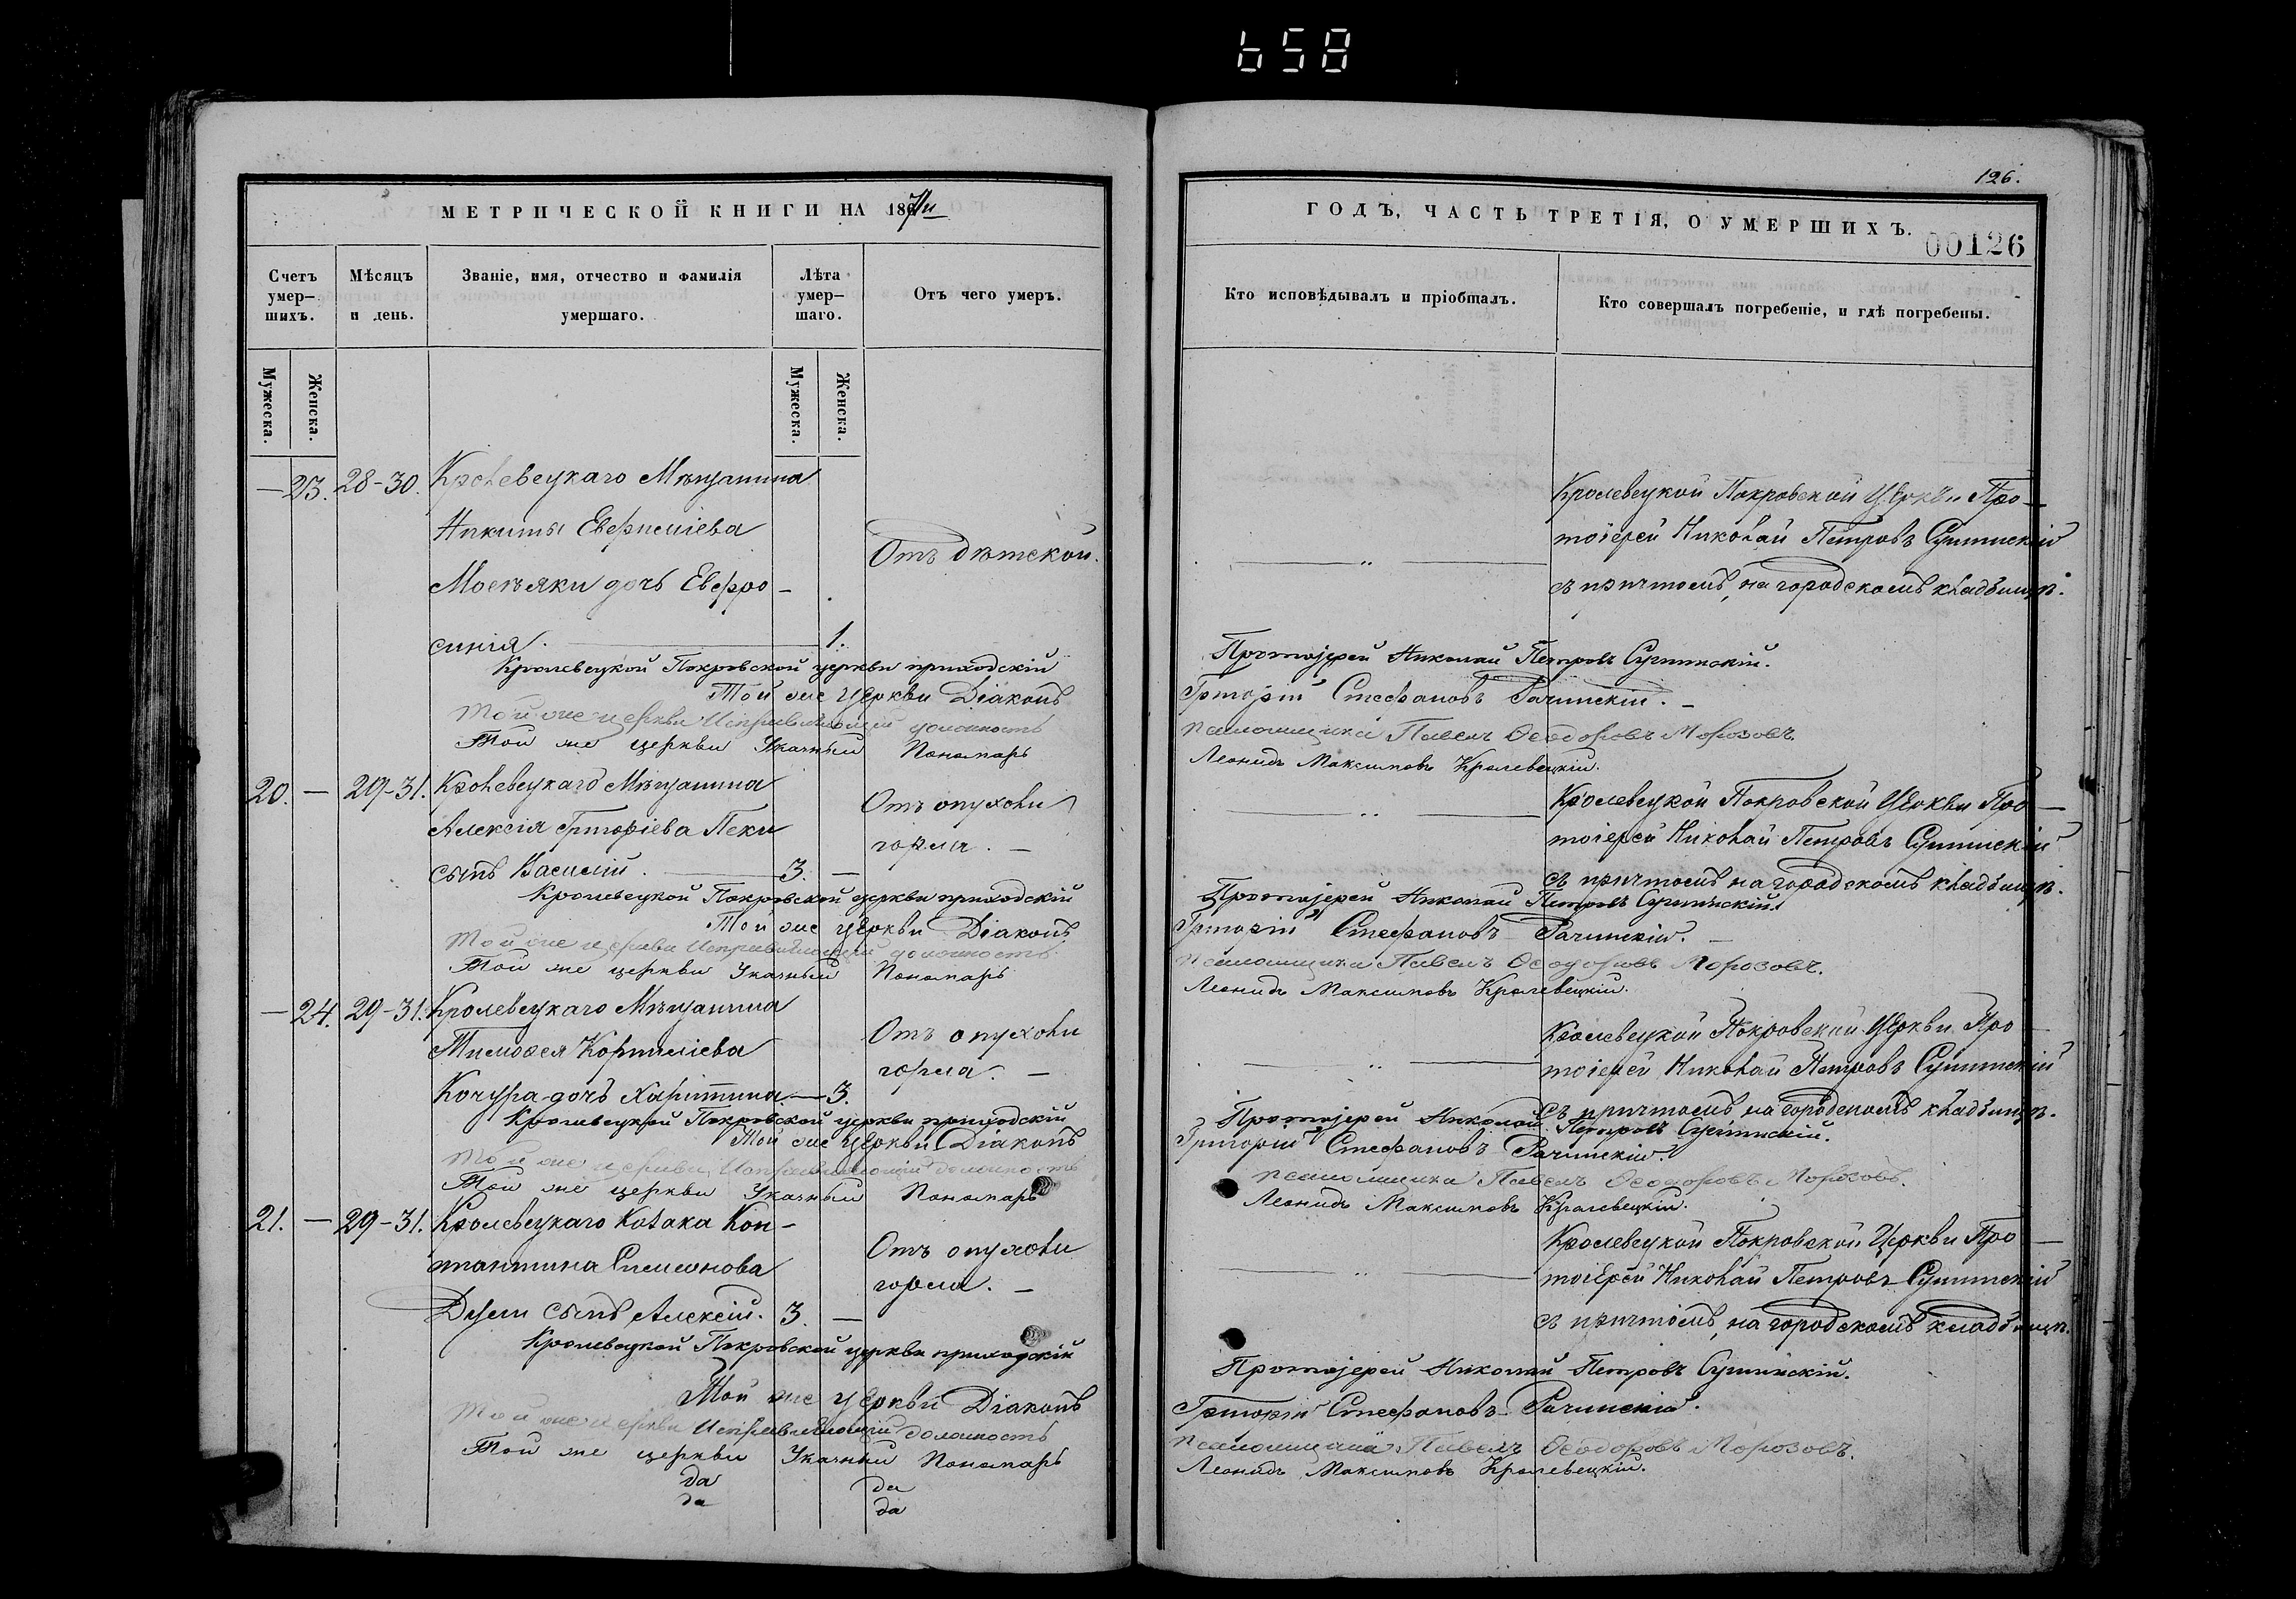 658
МЕТРИЧЕСКОЙ КНИГИ НА 1867й
Счетъ умер-шихъ.
Мѣсяцъ и день.
Званіе, имя, отчество и фамилія умершаго.
Лѣта умер-шаго.
Отъ чего умеръ.
Мужеска.
Женска.
Мужеска.
Женска.
— 23. 28-30. Кролевецкаго Мѣщанина
Никиты Еверпиліева
дочь Евфро-
синія. 1.
Отъ дѣтской.
Кролевецкой Покровской церкви приходскій
Той же Церкви Діаконъ
Той же церкви Исправляющій должность
Той же церкви Указный Пономарь
20. — 29-31. Кролевецкаго Мѣщанина
Алексія Григоріева Пеки
сынъ Василій. 3. —
Отъ опухоли
горла. —
Кролевецкой Покровской церкви приходскій
Той же Церкви Діаконъ
Той же церкви Исправляющій должность
Той же церкви Указный Пономарь
— 24. 29-31. Кролевецкаго Мѣщанина
Тимофея Корниліева
Кочура дочь Харитина. — 3.
Отъ опухоли
горла. —
Кролевецкой Покровской церкви приходскій
Той же Церкви Діаконъ
Той же церкви Исправляющій должность
Той же церкви Указный Пономарь
21. — 29-31. Кролевецкаго Козака Кон-
стантина Симеонова
сынъ Алексій. 3. —
Отъ опухоли
горла. —
Кролевецкой Покровской церкви приходскій
Той же Церкви Діаконъ
Той же церкви Исправляющій должность
Той же церкви Указный Пономарь
да да
да да
126.
ГОДЪ, ЧАСТЬ ТРЕТІЯ, О УМЕРШИХЪ.
00126
Кто исповѣдывалъ и пріобщалъ.
Кто совершалъ погребеніе, и гдѣ погребены.
Кролевецкой Покровской Церкви Про-
тоіерей Николай Петровъ Сушинскій
съ причтомъ, на городскомъ кладбищѣ.
Протоіерей Николай Петровъ Сушинскій.
Григорій Стефановъ Рачинскій. —
псаломщика Павелъ Ѳеодоровъ Морозовъ
Леонидъ Максимовъ Кролевецкій.
Кролевецкой Покровской Церкви Про-
тоіерей Николай Петровъ Сушинскій
съ причтомъ на городскомъ кладбищѣ.
Протоіерей Николай Петровъ Сушинскій.
Григорій Стефановъ Рачинскій. —
псаломщика Павелъ Ѳеодоровъ Морозовъ.
Леонидъ Максимовъ Кролевецкій.
Кролевецкой Покровской Церкви Про-
тоіерей Николай Петровъ Сушинскій
съ причтомъ на городскомъ кладбищѣ.
Протоіерей Николай Петровъ Сушинскій.
Григорій Стефановъ Рачинскій.
псаломщика Павелъ Ѳеодоровъ Морозовъ.
Леонидъ Максимовъ Кролевецкій.
Кролевецкой Покровской Церкви Про-
тоіерей Николай Петровъ Сушинскій
съ причтомъ, на городскомъ кладбищѣ.
Протоіерей Николай Петровъ Сушинскій.
Григорій Стефановъ Рачинскій.
псаломщика Павелъ Ѳеодоровъ Морозовъ.
Леонидъ Максимовъ Кролевецкій.